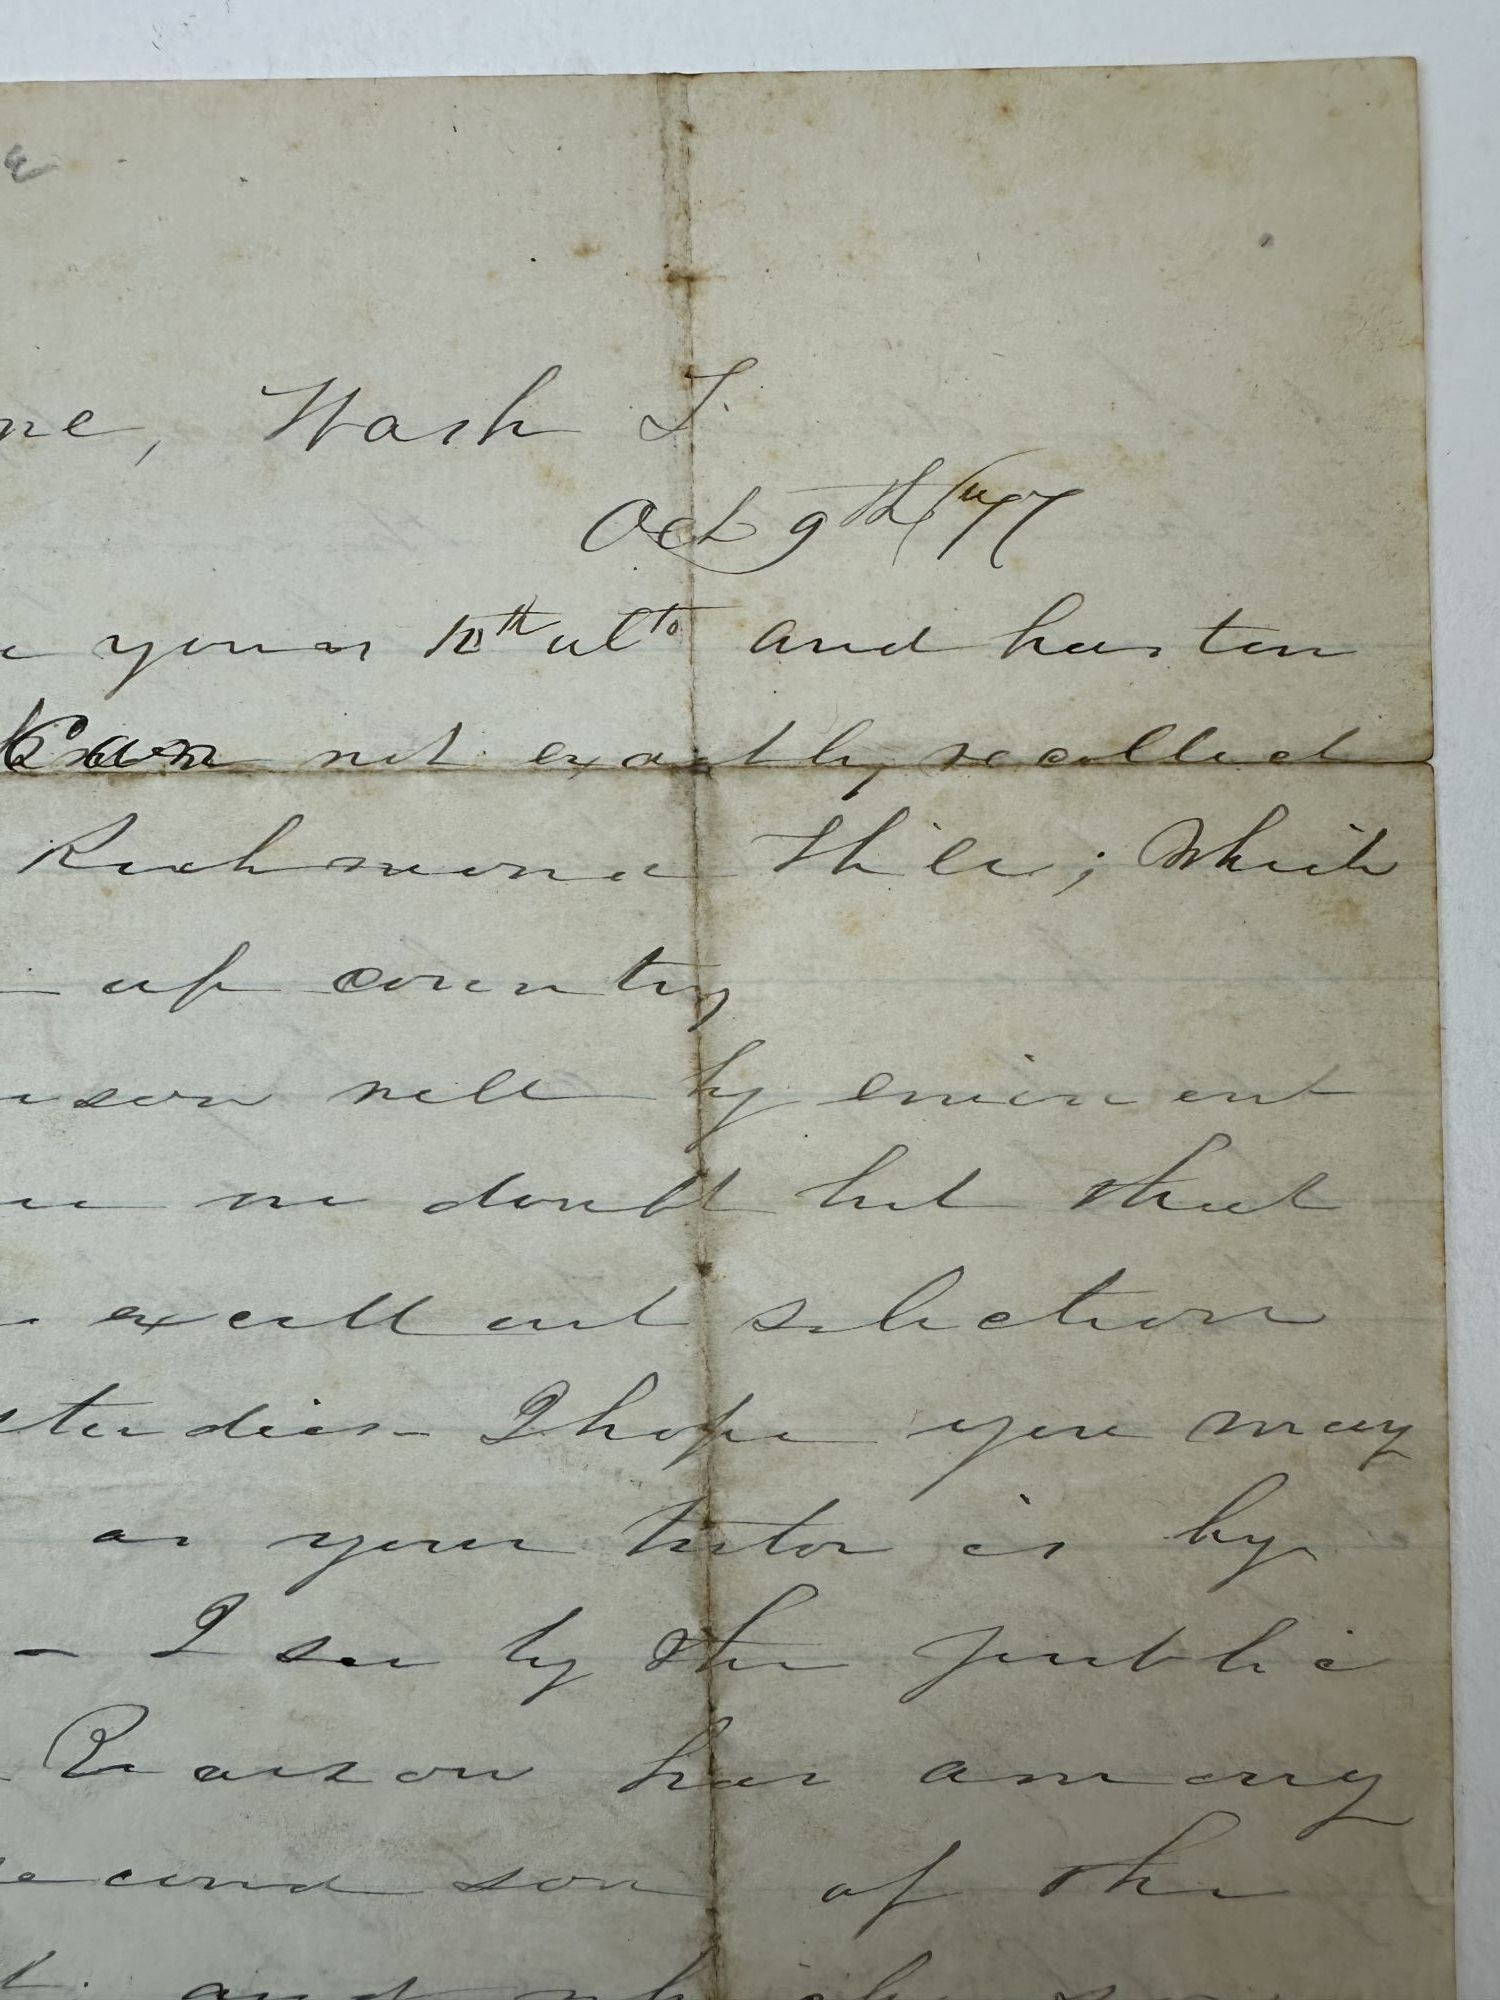 ne, Wash T.
Oct 9th /77
yours 10th ulto and hasten
Can not exactly recollect
Richmond Hill; which
up country
ason well by eminent
no doubt but that
excellent selection
studies - I hope you may
as your tutor is by
- I see by the public
Pearson has among
second son of the
and which